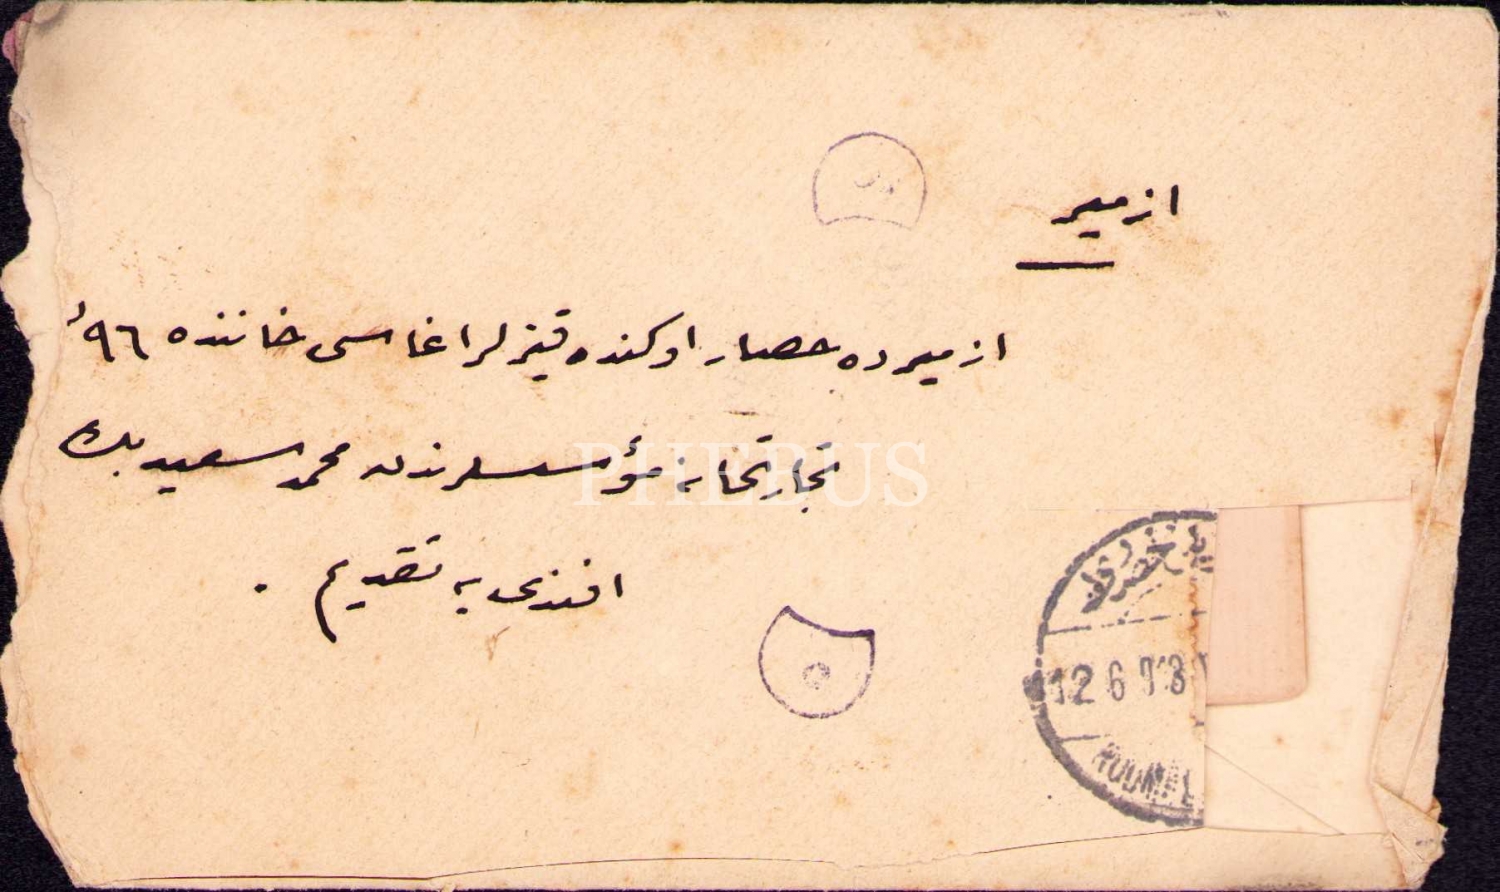 ازمير
ازميرده حصار اوكنده قيزلر اغاسى خاننده ٩٦
تجارتخانه مؤسسلرندن محمد سعيد بك
افندى يه تقديم .
PHEBUS
12 6 913
ROUMILI